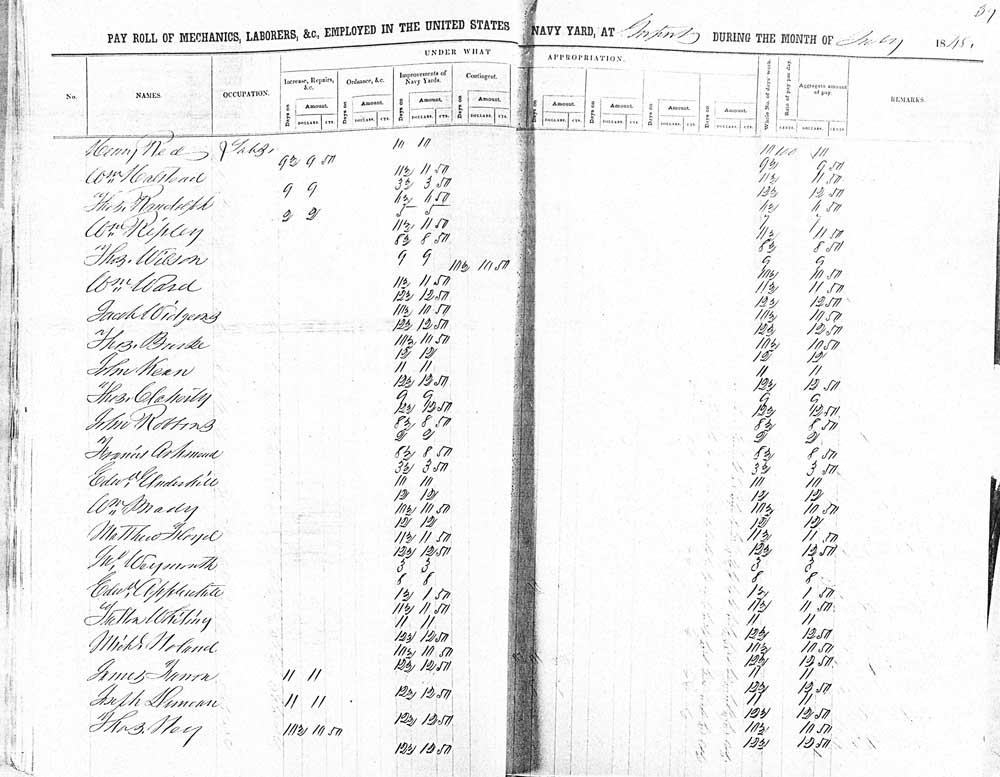 PAY ROLL OF MECHANICS, LABORERS, &c, EMPLOYED IN THE UNITED STATES NAVY YARD, AT Gosport DURING THE MONTH OF July 1845.
UNDER WHAT APPROPRIATION.
No. NAMES. OCCUPATION. Increase, Repairs, &c. Ordnance, &c. Improvements of Navy Yards. Contingent. Whole No. of days' work. Rate of pay per day. Aggregate amount of pay. REMARKS.
Days on Amount. DOLLARS. CTS. Days on Amount. DOLLARS. CTS. Days on Amount. DOLLARS. CTS. Days on Amount. DOLLARS. CTS. Days on Amount. DOLLARS. CTS. Days on Amount. DOLLARS. CTS. Days on Amount. DOLLARS. CTS. Days on Amount. DOLLARS. CTS. CENTS. DOLLARS. CENTS
Henry 10 10 10 100 10
9½ 9 50 9½ 9 50
Wm Halstead 11½ 11 50 11½ 11 50
9 9 3½ 3 50 12½ 12 50
Thos. Rudolph
2 2 5 5 7 7
Wm Ripley 11½ 11 50 11½ 11 50
8½ 8 50 8½ 8 50
Thos. Wilson 9 9 9 9
10½ 10 50 10½ 10 50
Wm Ward 11½ 11 50 11½ 11 50
12½ 12 50 12½ 12 50
Jacob Widgeons 10½ 10 50 10½ 10 50
12½ 12 50 12½ 12 50
Thos. Burke 10½ 10 50 10½ 10 50
12 12 12 12
John Kean 11 11 11 11
12½ 12 50 12½ 12 50
Thos. Claherty 9 9 9 9
12½ 12 50 12½ 12 50
John Robbins 8½ 8 50 8½ 8 50
2 2 2 2
Francis Ashmead 8½ 8 50 8½ 8 50
3½ 3 50 3½ 3 50
Edwd Underhill 10 10 10 10
12 12 12 12
Wm Brady 10½ 10 50 10½ 10 50
12 12 12 12
Matthew Floyd 11½ 11 50 11½ 11 50
12½ 12 50 12½ 12 50
Weymouth 3 3 3 3
8 8 8 8
Edwd Applewhite 1½ 1 50 1½ 1 50
11½ 11 50 11½ 11 50
Whiting 11 11 11 11
12½ 12 50 12½ 12 50
Michl Noland 10½ 10 50 10½ 10 50
12½ 12 50 12½ 12 50
James 11 11 11 11
12½ 12 50 12½ 12 50
Joseph Duncan 11 11 11 11
12½ 12 50 12½ 12 50
Thos. 10½ 10 50 10½ 10 50
12½ 12 50 12½ 12 50